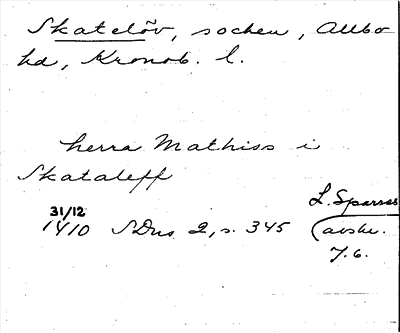 Skatelöv, socken, Allbo
hd, Kronob. l.
herra Mathiss i
Skataleff
31/12
1410 SDns 2, s. 345
L. Sparres
(avskr.
7.6.